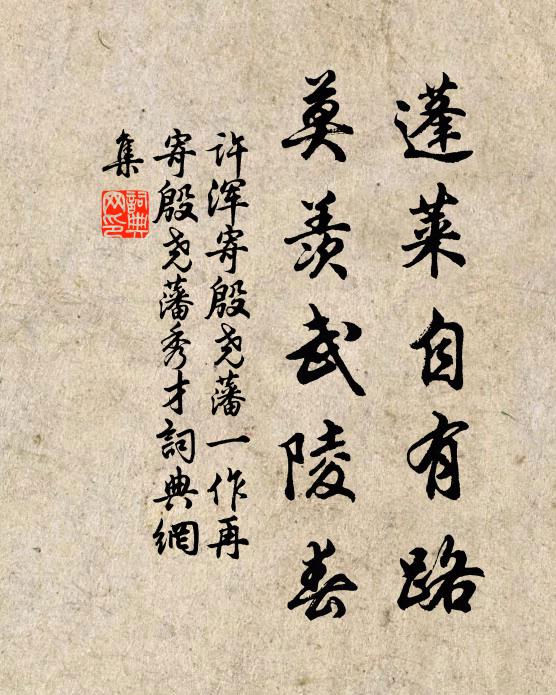 蓬莱自有路
莫羡武陵春
许浑寄殷尧藩一作再
寄殷尧藩秀才詞典網
集
詞典网印